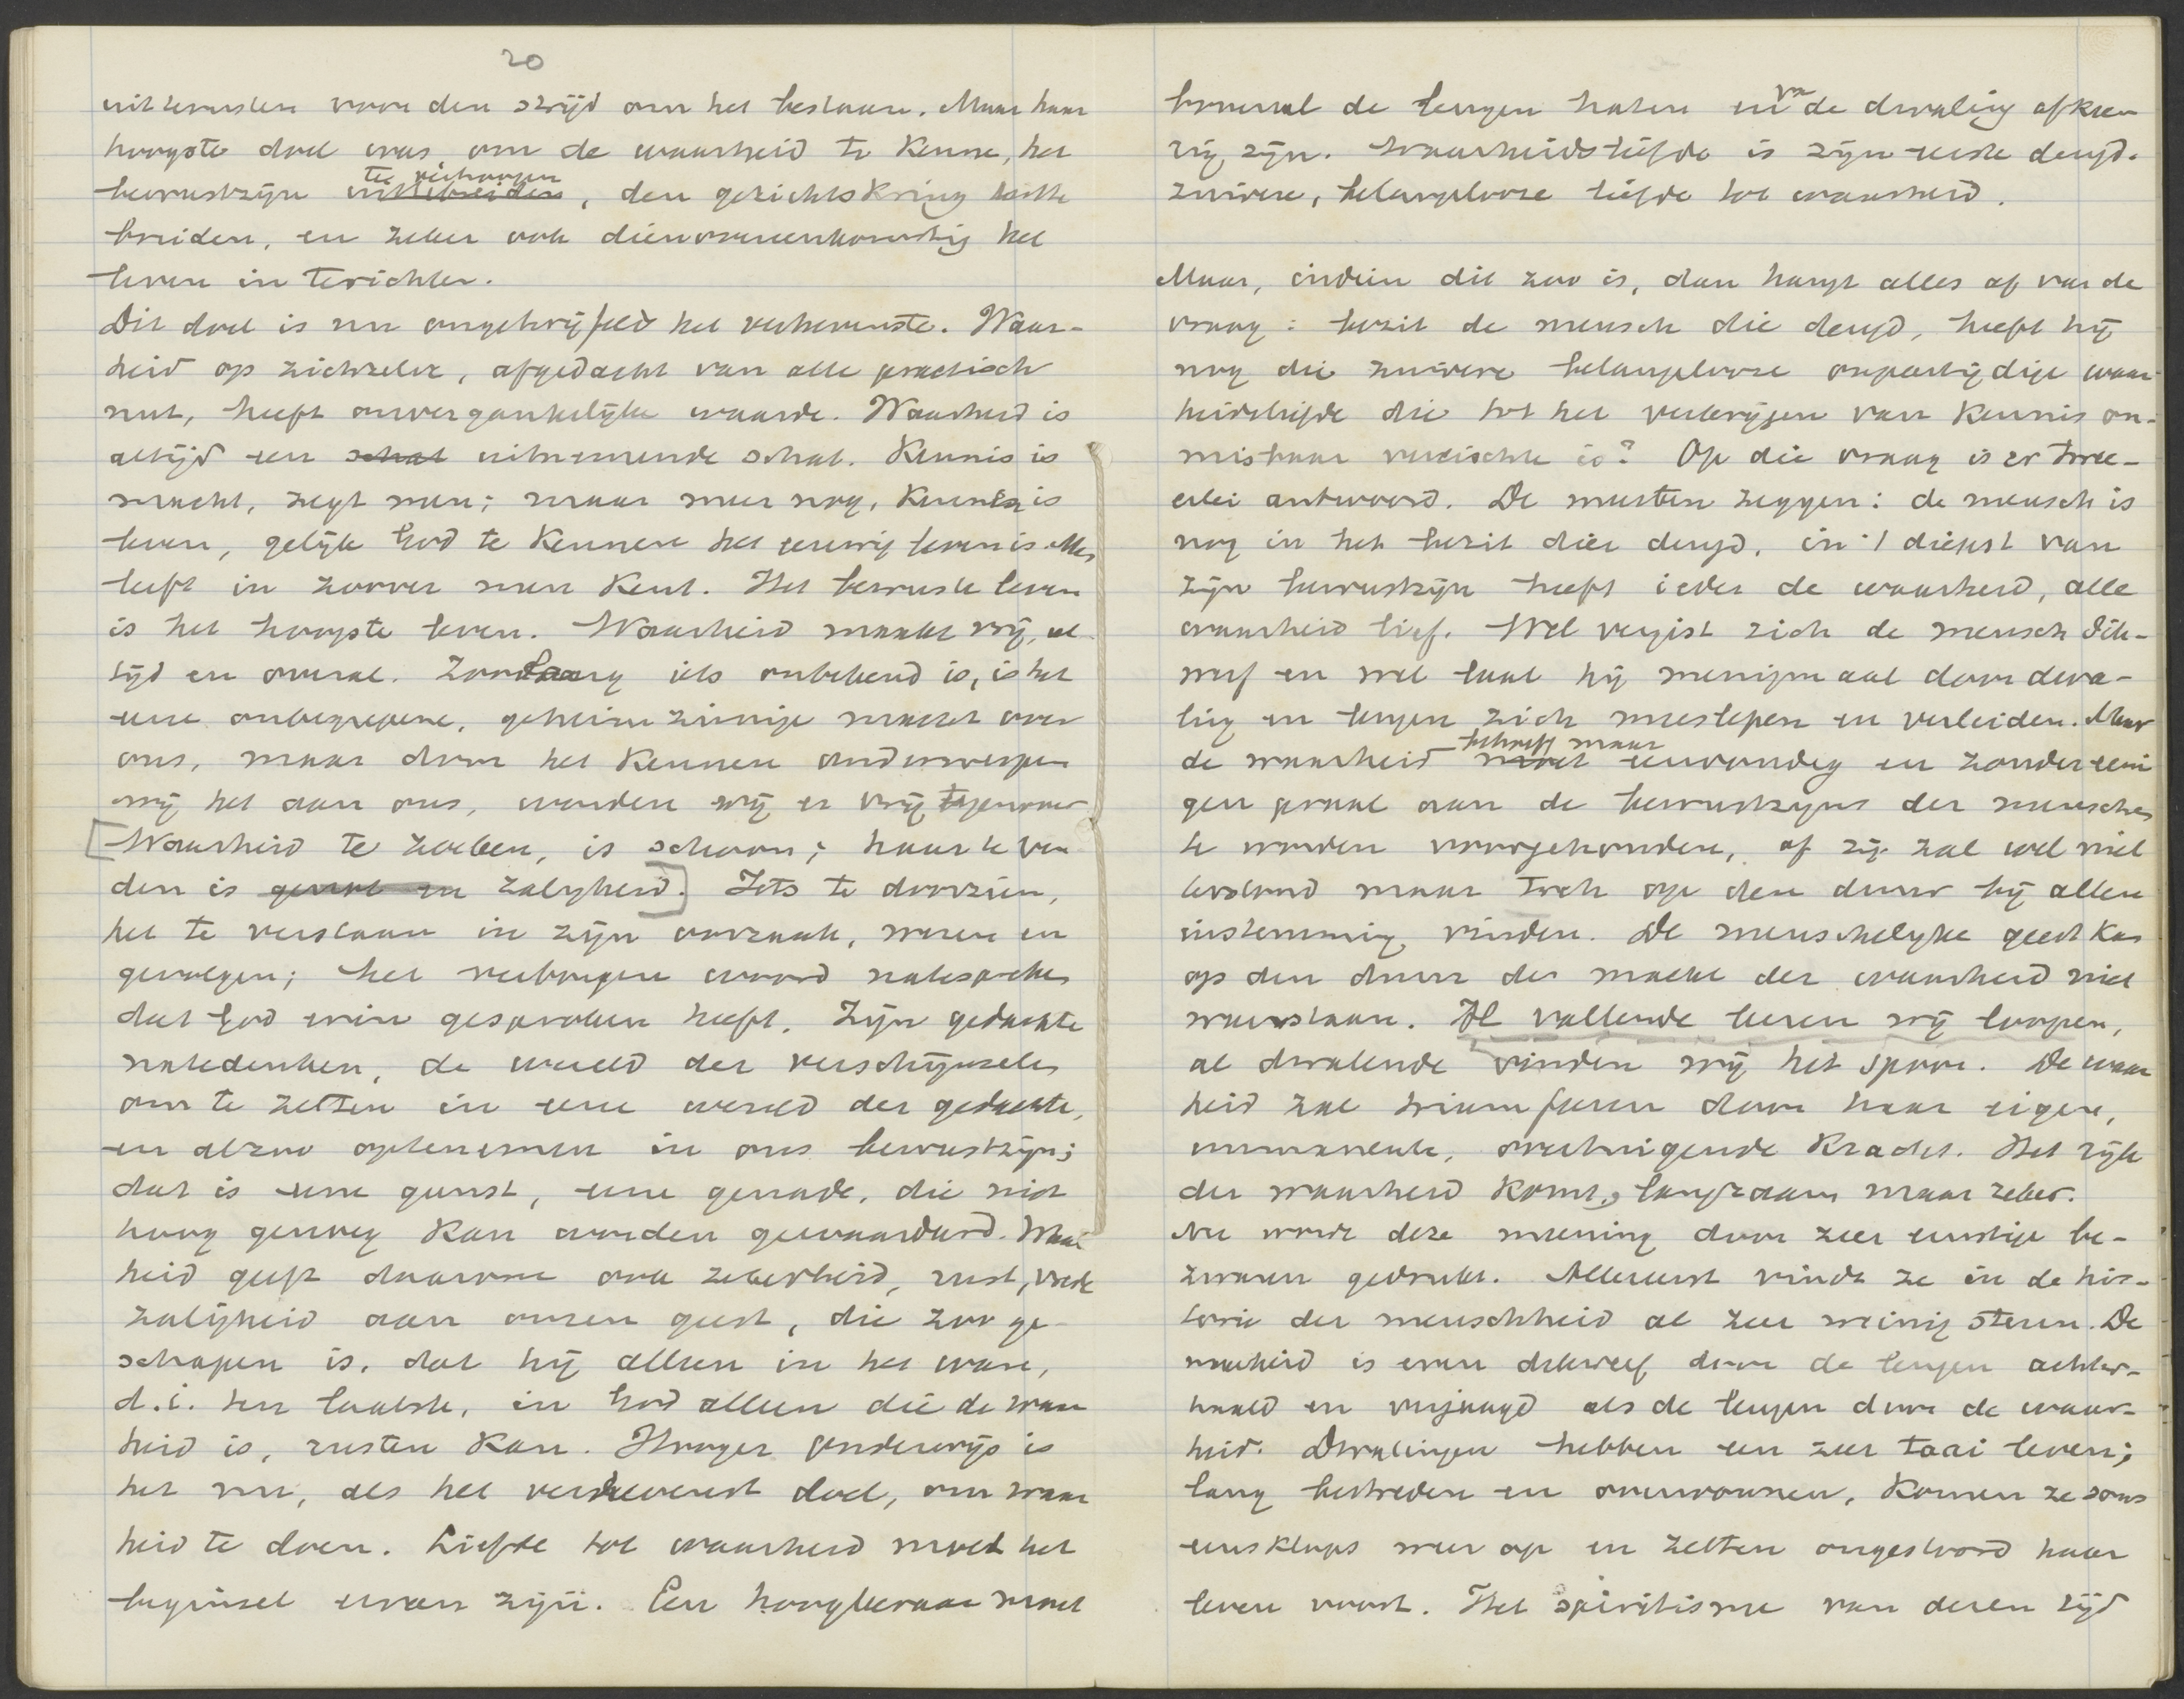 20
uit te rusten voor den strijd om het bestaan. Maar haar
hoogste doel was, om de waarheid te kennen, het
bewustzijn uittebreiden te verhoogen, den gezichtskring
breiden, en zeker ook dienovereenkomstig het
leven in terichten.
Dit doel is nu ongetwijfeld het verhevenste. Waar-
heid op zichzelve, afgedacht van alle practisch
nut, heeft onvergankelijke waarde. Waarheid is
altijd een schat uitnemende schat. Kennis is
macht, zegt men; maar meer nog, Kennen is
leven, gelijk God te kennen het eeuwig leven is. Men
leeft in zoover men kent. Het bewuste leven
is het hoogste leven. Waarheid maakt vrij, al-
tijd en overal. Zoolang iets onbekend is, is het
eene onbegrepene, geheimzinnige macht over
ons, maar door het kennen onderwerpen
wij het aan ons, worden wij er vrij tegenover
[Waarheid te zoeken, is schoon; haar te vin
den is genot en zaligheid.] Iets te doorzien,
het te verstaan in zijn oorzaak, wezen en
gevolgen; het verborgen woord natespreken
dat God erin gesproken heeft. Zijn gedachte
natedenken, de wereld der verschijnselen
om te zetten in eene wereld der gedachte,
en alzoo optenemen in ons bewustzijn;
dat is eene gunst, eene genade, die niet
hoog genoeg kan worden gewaardeerd. Waar
heid geeft daarom ook zekerheid, rust, vrede
zaligheid aan onzen geest, die zoo ge-
schapen is, dat hij alleen in het ware,
d.i. ten laatste, in God alleen die de waar
heid is, rusten kan. Hooger onderwijs is
het nu, als het verhevenst doel, om waar
heid te doen. Liefde tot waarheid moet het
beginsel ervan zijn. Een hoogleeraar moet
bovenal de leugen haten en van de dwaling afkee-
rig zijn. Waarheidsliefde is zijn eerste deugd.
zuivere, belangelooze liefde tot waarheid.
Maar, indien dit zoo is, dan hangt alles af van de
vraag: bezit de mensch die deugd, heeft hij
nog die zuivere belangelooze onpartijdige waar-
heidsliefde die tot het verkrijgen van kennis on-
misbaar vereischte is? Op die vraag is er twee-
erlei antwoord. De meesten zeggen: de mensch is
nog in het bezit dier deugd, in 't diepst van
zijn bewustzijn heeft ieder de waarheid, alle
waarheid lief. Wel vergist zich de mensch dik-
werf en wel laat hij menigmaal door dwa-
ling en leugen zich meeslepen en verleiden. Maar
de waarheid moet behoeft maar eenvoudig en zonder eeni
gen praal aan de bewustzijns der menschen
te worden voorgehouden, of zij zal wel niet
terstond maar toch op den duur bij allen
instemming vinden. De menschelijke geest kan
op den duur der macht der waarheid niet
weerstaan. Al vallende leeren wij loopen,
al dwalende vinden wij het spoor. De waar
heid zal triumfeeren door haar eigene,
immanente, overtuigende kracht. Het rijk
der waarheid komt, langzaam maar zeker.
Nu wordt deze meening door zeer ernstige be-
zwaren gedrukt. Allereerst vindt ze in de his-
torie der menschheid al zeer weinig steun. De
waarheid is even dikwerf door de leugen achter-
haald en verjaagd als de leugen door de waar-
heid. Dwalingen hebben een zeer taai leven;
lang bestreden en overwonnen, komen ze soms
eensklaps weer op en zetten ongestoord haar
leven voort. Het spiritisme van dezen tijd